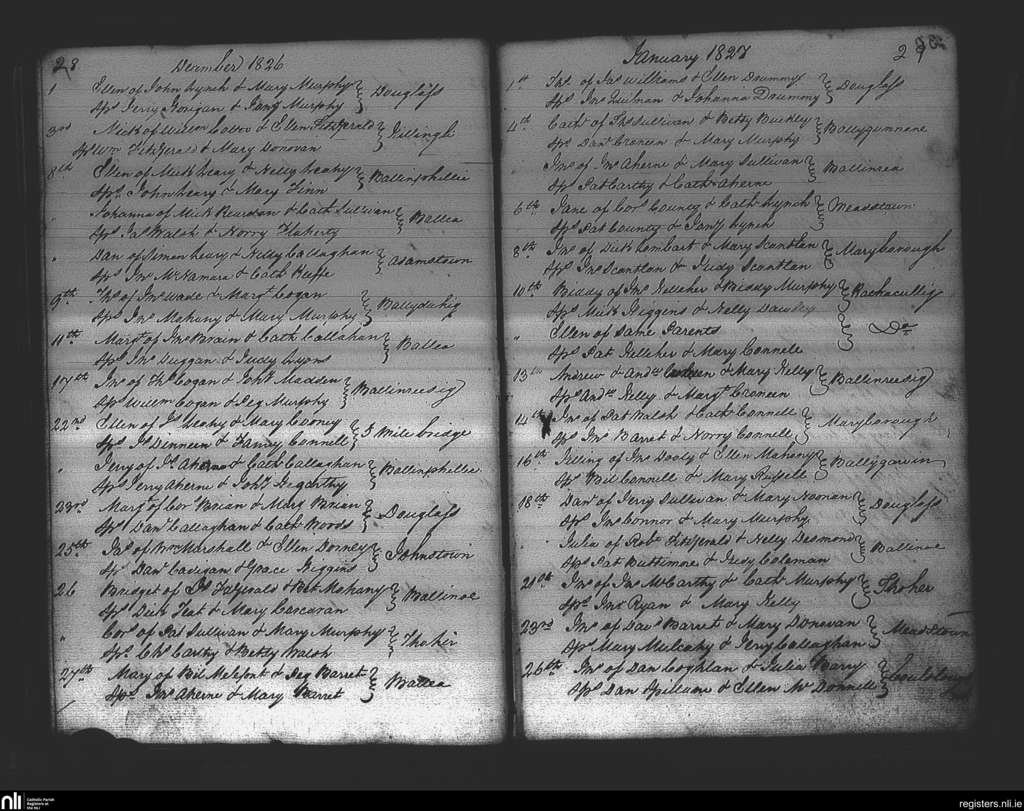 28
December 1826
1 Ellen of John Lynch & Mary Murphy
Sps Jerry Horigan & Fany Murphy Douglass
3rd Mick of Willm Cotto & Ellen FitzGerald
Sps Wm FitzGerald & Mary Donovan Killingly
8th Ellen of Mick Leary & Nelly Leahy
Sps John Leary & Mary Finn Ballinphellie
" Johanna of Mick Reardon & Cath Sullivan
Sps Jas Walsh & Norry Flaherty Ballea
" Dan of Simon Leary & Nelly Callaghan
Sps Jno McNamara & Cath Keeffe Adamstown
9th Thos of Jno Wade & Margt Cogan
Sps Jno Mahony & Mary Murphy Ballyduhig
11th Margt of Jno Brain & Cath Callahan
Sps Jno Duggan & Judy Lyons Ballea
17th Jno of Thos Cogan & Joha Madden
Sps Willm Cogan & Peg Murphy Ballinreesig
22nd Ellen of Js Mahy & Mary Cooney
Sps Js Dinneen & Fanny Connell 5 Mile bridge
" Jerry of Js Aherne & Cath Callaghan
Sps Jerry Aherne & Joha Hegarthy Ballinphellie
23rd Margt of Cors Brian & Marg Brian
Sps Danl Callaghan & Cath Woods Douglass
25th Jas of Wm Marshall & Ellen Dorney
Sps Danl Cadigan & Grace Higgins Johnstown
26 Bridget of Ps FitzGerald & Bet Mahany
Sps Dick Fleet & Mary Corcoran Ballinoe
" Cors of Pat Sullivan & Mary Murphy
Sps Chs Carthy & Betty Walsh Thoher
27th Mary of Bil Melefont & Peg Barret
Sps Jno Aherne & Mary Barret Ballea
January 1827
29
1st Thos of Jas Williams & Ellen Drummy
Sps Jno Quilnan & Johanna Drummy Douglass
4th Cath of Ths Sullivan & Betty Buckly
Sps Danl Croneen & Mary Murphy Ballygunnane
Jno of Jno Aherne & Mary Sullivan
Sps Pat Carthy & Cath Aherne Ballinrea
6th Jane of Cors County & Cath Lynch
Sps Pat County & Fany Lynch Meadstown
8th Jno of Dick Lombart & Mary Scantlan
Sps Jno Scantlan & Judy Scantlan Maryborough
10th Biddy of Jno Kelleher & Biddy Murphy
Sps Mick Higgens & Nelly Dawley Rachacullig
" Ellen of Same Parents
Sps Pat Kelleher & Mary Connele Do
13th Andrew of Andw Croneen & Mary Kelly
Sps Andw Kelly & Margt Croneen Ballinreesig
14th Jno of Pat Walsh & Cath Connell
Sps Jno Barret & Norry Connell Maryborough
16th Jilling of Jno Dooly & Ellen Mahony
Sps Bil Connell & Mary Russell Ballygarvin
18th Danl of Jerry Sullivan & Mary Noonan
Sps Jno Connor & Mary Murphy Douglass
Julia of Robt FitzGerald & Nelly Desmond
Sps Pat Buttimore & Judy Coleman Ballinoe
21th Jno of Jno McCarthy & Cath Murphy
Sps Jno Ryan & Mary Kelly Thoher
23rd Jno of Davd Barret & Mary Donovan
Sps Mary Mulcahy & Jerry Callaghan Meadstown
26th Jno of Dan Coghlan & Julia Barry
Sps Dan Spillane & Ellen McDonnell
nli
Catholic Parish
Registers at
the NLI
registers.nli.ie